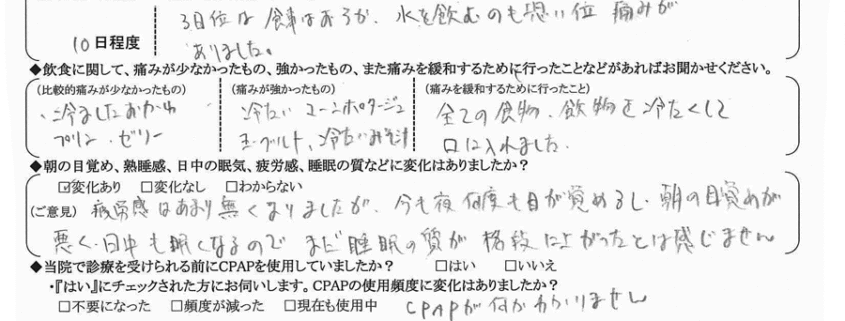 3日位は食事はおろか、水を飲むのも恐い位 痛みが
10日程度 ありました。
◆飲食に関して、痛みが少なかったもの、強かったもの、また痛みを緩和するために行ったことなどがあればお聞かせください。
(比較的痛みが少なかったもの) (痛みが強かったもの) (痛みを緩和するために行ったこと)
・冷ましたおかゆ 冷たい コーンポタージュ 全ての食物、飲物を冷たくして
プリン・ゼリー ヨーグルト、冷たいみそ汁 口に入れました。
◆朝の目覚め、熟睡感、日中の眠気、疲労感、睡眠の質などに変化はありましたか?
☑変化あり □変化なし □わからない
(ご意見) 疲労感はあまり無くなりましたが、今も夜何度も目が覚めるし、朝の目覚めが
悪く、日中も眠くなるので まだ睡眠の質が 格段に上がったとは感じません
◆当院で診療を受けられる前にCPAPを使用していましたか? □はい □いいえ
・『はい』にチェックされた方にお伺いします。CPAPの使用頻度に変化はありましたか?
□不要になった □頻度が減った □現在も使用中 CPAPが何かわかりません